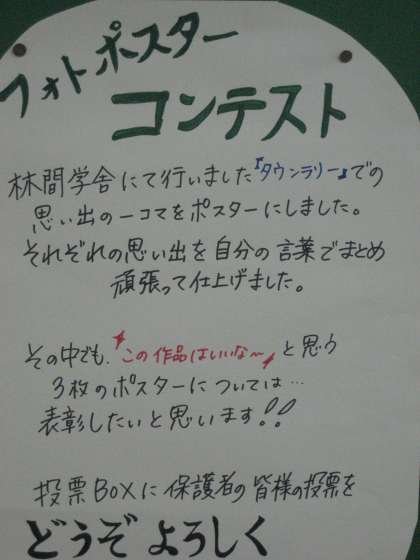 フォトポスター
コンテスト
林間学舎にて行いました『タウンラリー』での
思い出の一コマをポスターにしました。
それぞれの思い出を自分の言葉でまとめ
頑張って仕上げました。
その中でも、"この作品はいいな～"と思う
3枚のポスターについては…
表彰したいと思います!!
投票BOXに保護者の皆様の投票を
どうぞよろしく